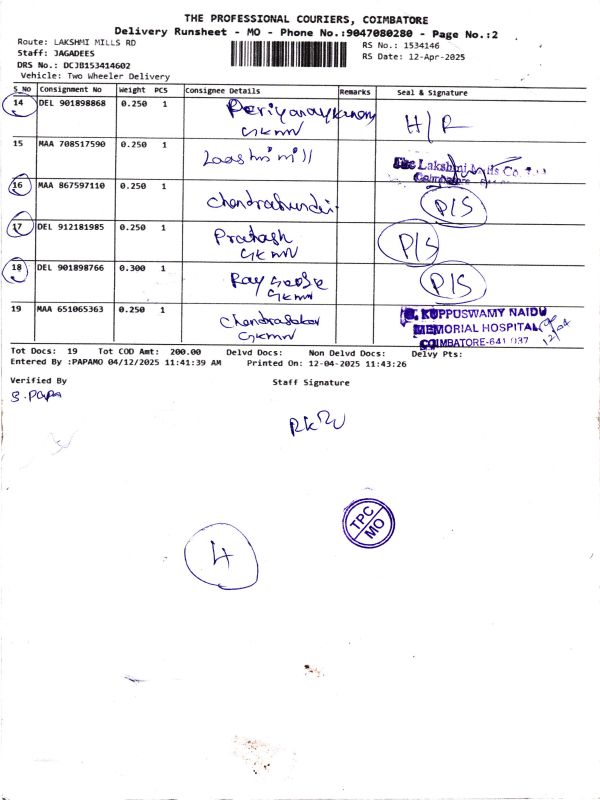 THE PROFESSIONAL COURIERS, COIMBATORE
Delivery Runsheet - MO - Phone No.:9047080280 - Page No.:2
Route: LAKSHMI MILLS RD
Staff: JAGADEES
DRS No.: DCJB153414602
Vehicle: Two Wheeler Delivery
RS No.: 1534146
RS Date: 12-Apr-2025
S_No Consignment No Weight PCS Consignee Details Remarks Seal & Signature
14 DEL 901898868 0.250 1
GKMN H/R
15 MAA 708517590 0.250 1
The Lakshmi Mills Co.
Coimbatore
16 MAA 867597110 0.250 1 P/S
17 DEL 912181985 0.250 1 Prakash P/S
GKMN
18 DEL 901898766 0.300 1 P/S
GKMN
19 MAA 651065363 0.250 1
GKMN
G. KUPPUSWAMY NAIDU
MEMORIAL HOSPITAL
COIMBATORE-641 037
12/04
Tot Docs: 19 Tot COD Amt: 200.00 Delvd Docs: Non Delvd Docs: Delvy Pts:
Entered By :PAPAMO 04/12/2025 11:41:39 AM Printed On: 12-04-2025 11:43:26
Verified By Staff Signature
S.PAPA
TPC
MO
4